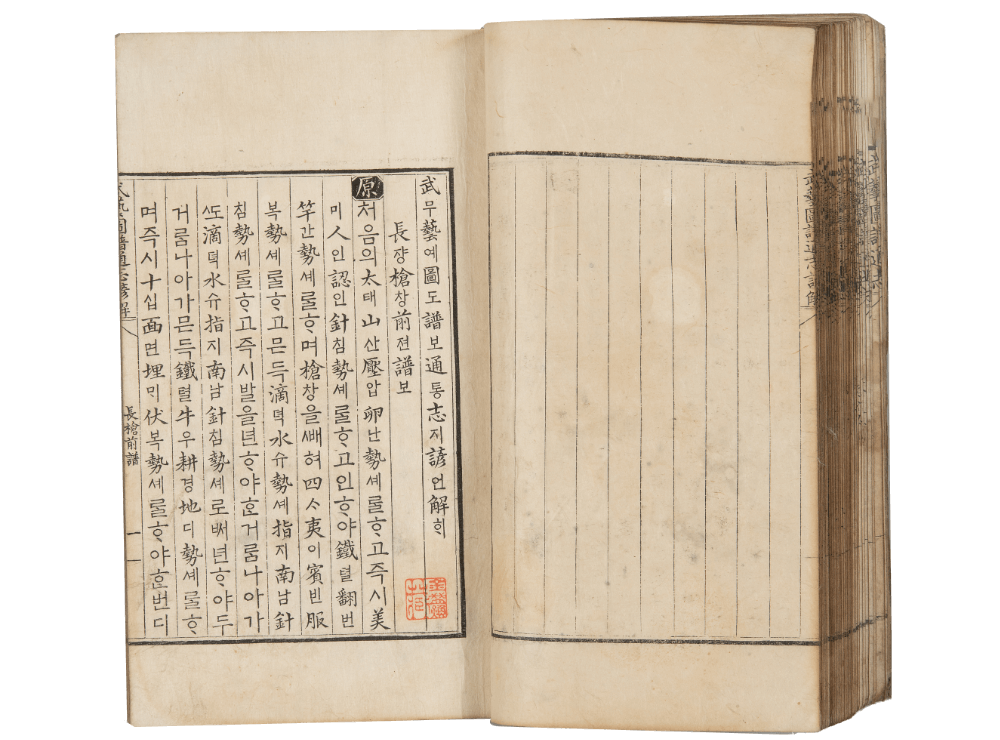 武藝圖譜通志諺解
武무藝예圖도譜보通통志지諺언解ᄒᆡ
長쟝槍창前젼譜보
原처음의太태山산壓압卵난勢셰ᄅᆞᆯᄒᆞ고즉시美
미人인認인針침勢셰ᄅᆞᆯᄒᆞ고인ᄒᆞ야鐵텰翻번
竿간勢셰ᄅᆞᆯᄒᆞ며槍창을ᄲᅢ혀四ᄉᆞ夷이賓빈服
복勢셰ᄅᆞᆯᄒᆞ고믄득滴뎍水슈勢셰指지南남針
침勢셰ᄅᆞᆯᄒᆞ고즉시발을년ᄒᆞ야ᄒᆞᆫ거ᄅᆞᆷ나아가
ᄯᅩ滴뎍水슈指지南남針침勢셰로ᄡᅥ년ᄒᆞ야두
거ᄅᆞᆷ나아가믄득鐵텰牛우耕경地디勢셰ᄅᆞᆯᄒᆞ
며즉시十십面면埋ᄆᆡ伏복勢셰ᄅᆞᆯᄒᆞ야ᄒᆞᆫ번디
武藝圖譜通志諺解
長槍前譜
一